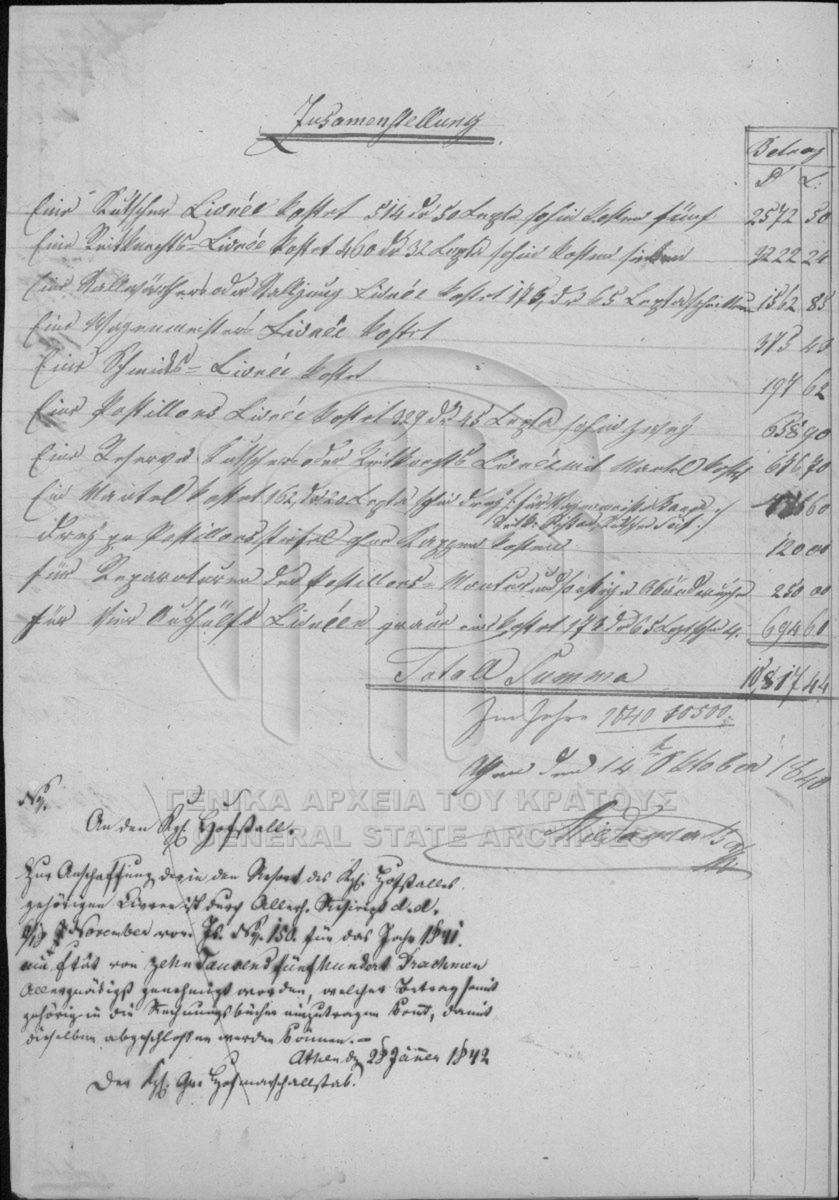 Zusamenstellung
Betrag
D L:
Eine Kutscher Livrée kostet 514 dr 50 Lepta sohin kosten fünf 2572 50
Eine Reitknechts-Livrée kostet 460 dr 32 Lepta sohin kosten sieben 3222 24
Eine Stallwächters oder Stalljung Livrée kostet 173 dr 65 Lepta sohin 1562 85
Eine Wagenmeisters Livrée kostet 373 43
Eine Schmids-Livrée kostet 197 62
Eine Postillons Livrée kostet 329 dr 45 Lepta sohin zwey 658 90
Eine Reserve Kutscher oder Reitknechts Livrée mit Mantel kostet 676,70
Ein Mantel kostet 162 dr 20 Lepta sohin drey für Wagenmeister 60
drey pr Postillonsstiefel ohne Kappen kosten 120 00
für Reparaturen der Postillons-Montur und sonstige Abänderungen 250 00
für vier Aushülfs Livréen graue eine kostet 173 dr 65 Lepta sohin 4. 694 60
Totall Summa 10,817 44
Im Jahre 1840 10500
Athen den 14 t Oktober 1840
No.
An den Kgl. Hofstall.
Zur Anschaffung der in den Ressort des Kgl. Hofstalles
gehörigen Livreen ist durch Allerh. Rescript d. d.
November vor. Js. No. 150. für das Jahr 1841.
ein Etat von zehn Tausend fünfhundert Drachmen
Allergnädigst genehmigt worden, welcher Betrag somit
gehörig in die Rechnungsbücher einzutragen kömt, damit
dieselben abgeschlossen werden können. —
Athen den 29 Jänner 1842
Der Kgl. Gr. Hofmarschallstab.
ΓΕΝΙΚΑ ΑΡΧΕΙΑ ΤΟΥ ΚΡΑΤΟΥΣ
GENERAL STATE ARCHIVES